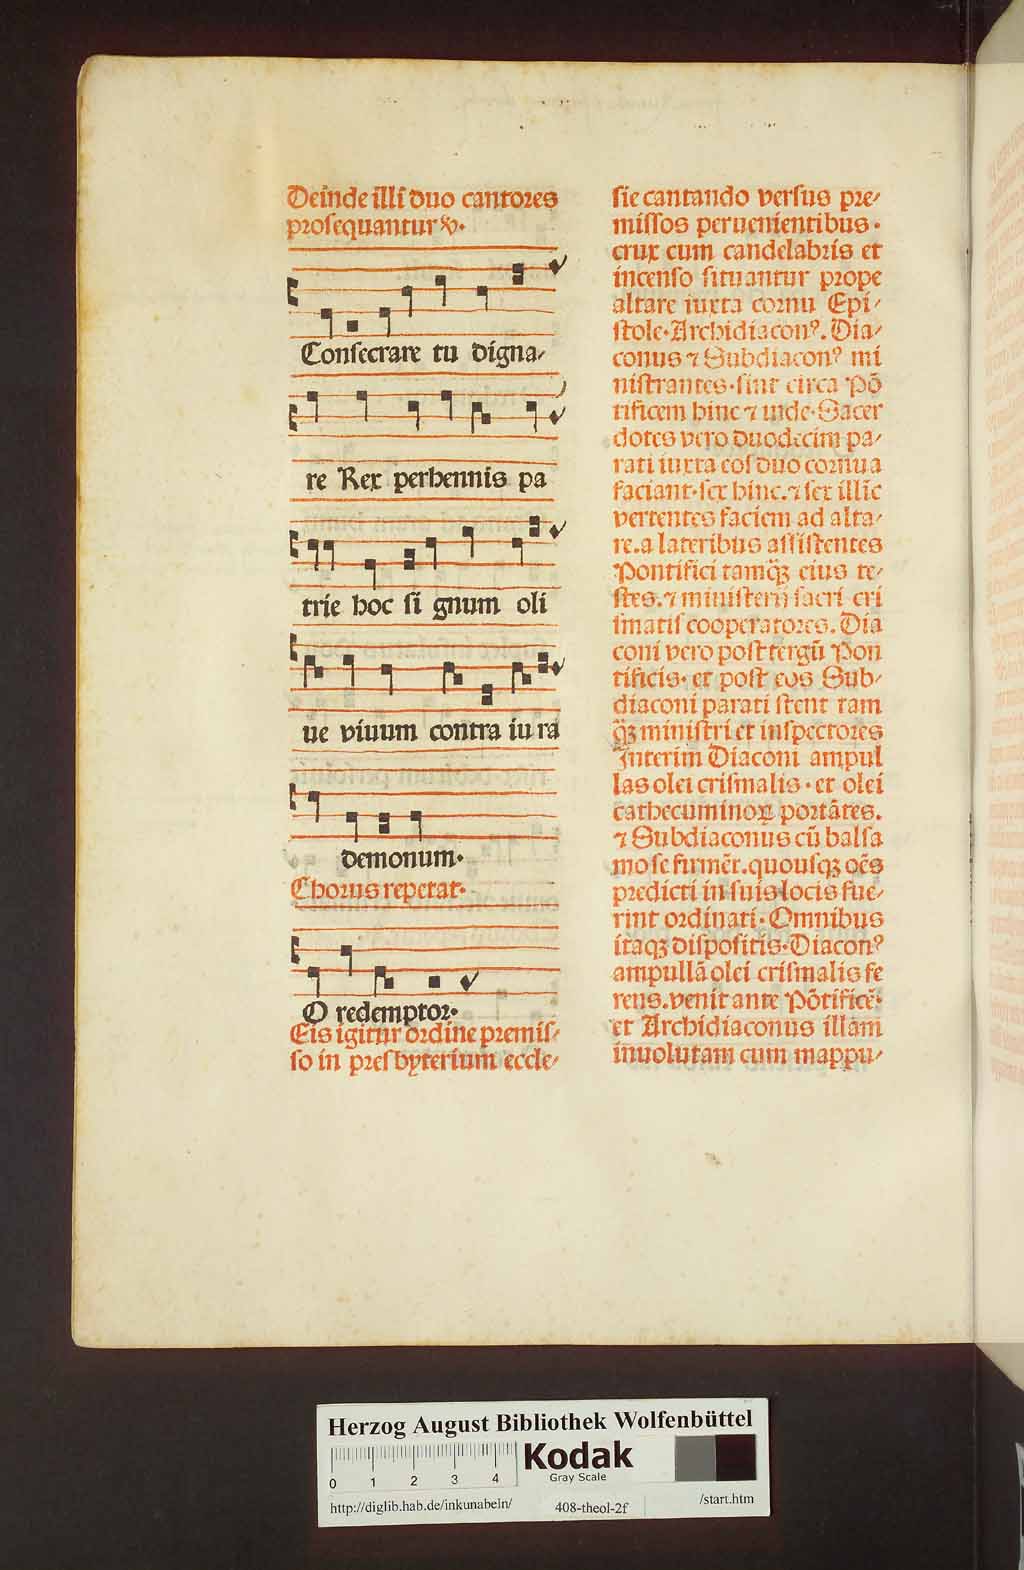 Deinde illi duo cantores
prosequantur ℣.
Consecrare tu digna/
re Rex perhennis pa
trie hoc si gnum oli
ue viuum contra iu ra
demonum.
Chorus repetat.
O redemptor.
Eis igitur ordine premiſ/
ſo in presbyterium eccle/
ſie cantando verſus pre/
miſſos peruenientibus.
crux cum candelabris et
incenſo ſituantur prope
altare iuxta cornu Epi/
ſtole. Archidiaconꝰ. Dia/
conus ⁊ Subdiaconꝰ mi
niſtrantes. ſint circa Põ
tificem hinc ⁊ inde. Sacer
dotes vero duodecim pa/
rati iuxta eoſ duo cornua
faciant. ſex hinc. ⁊ ſex illic
vertentes faciem ad alta/
re. a lateribus aſſiſtentes
Pontifici tamq̃ꝫ eius te/
ſtes. ⁊ miniſterij ſacri cri
ſmatiſ cooperatores. Dia
coni vero poſt tergũ Pon
tificis. et poſt eos Sub/
diaconi parati ſtent tam
q̃ꝫ miniſtri et inſpectores
Interim Diaconi ampul
las olei criſmalis. et olei
cathecuminoꝝ portãtes.
⁊ Subdiaconus cũ balſa
mo ſe firmẽt. quouſqꝫ oẽs
predicti in ſuis locis fue/
rint ordinati. Omnibus
itaqꝫ diſpoſitis. Diaconꝰ
ampullã olei criſmalis fe
rens. venit ante Põtificẽ.
et Archidiaconus illam
inuolutam cum mappu/
Herzog August Bibliothek Wolfenbüttel
Kodak
Gray Scale
0 1 2 3 4
http://diglib.hab.de/inkunabeln/ 408-theol-2f /start.htm